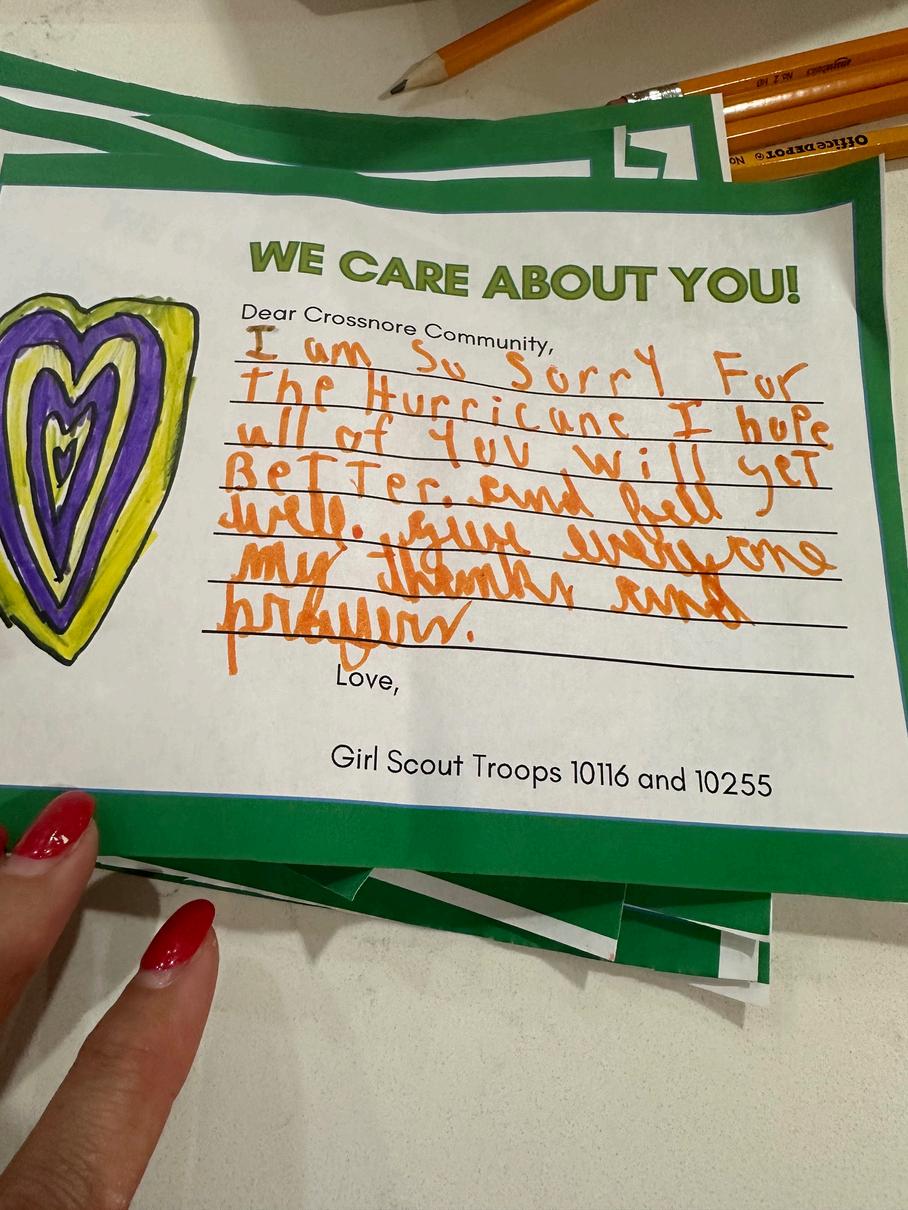 No 2 HB
Office DEPOT®
No
WE CARE ABOUT YOU!
Dear Crossnore Community,
I am So SorrY For
the Hurricane I hope
all of YoU will get
BeTTer. and fell
well. give everyone
my thanks and
prayers.
Love,
Girl Scout Troops 10116 and 10255